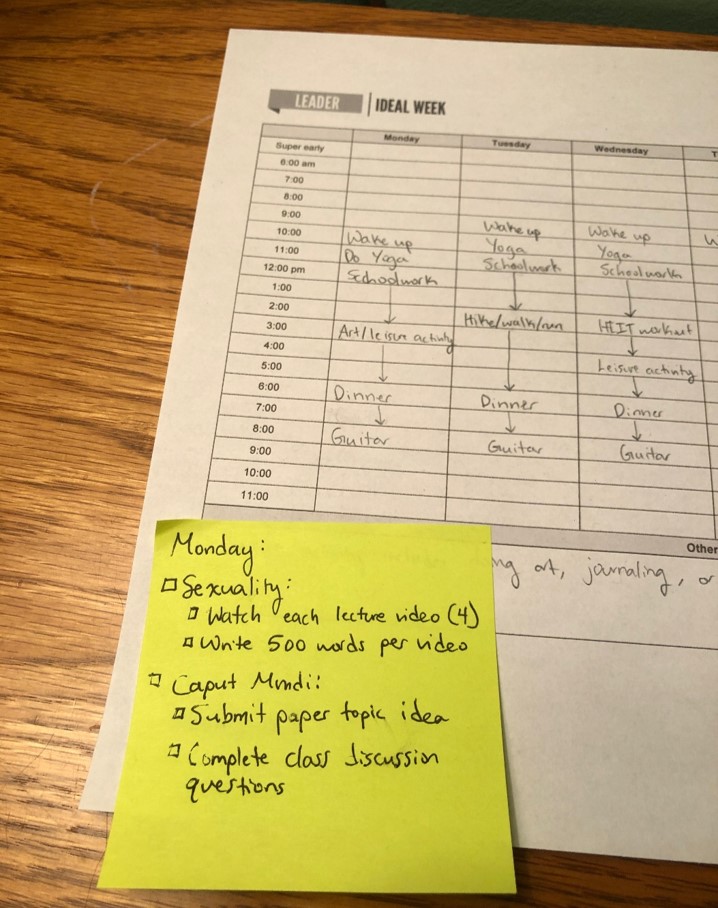 LEADER IDEAL WEEK
Monday Tuesday Wednesday T
Super early
6:00 am
7:00
8:00
9:00
10:00 Wake up Wake up Wake up W
11:00 Do Yoga Yoga Yoga
12:00 pm Schoolwork Schoolwork Schoolwork
1:00
2:00
3:00 Art/leisure activity Hike/walk/run HIIT workout
4:00
5:00 Leisure activity
6:00 Dinner Dinner Dinner
7:00
8:00 Guitar Guitar Guitar
9:00
10:00
11:00
Other
ng art, journaling, or
Monday:
Sexuality:
Watch each lecture video (4)
Write 500 words per video
Caput Mundi:
Submit paper topic idea
Complete class discussion
questions